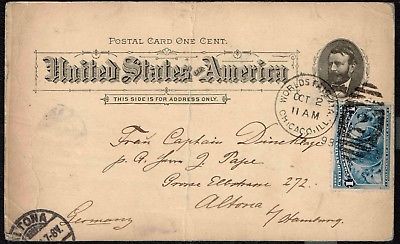 POSTAL CARD ONE CENT.
United States of America
THIS SIDE IS FOR ADDRESS ONLY.
WORLD'S FAIR
OCT 2
11 AM
CHICAGO, ILL.
93
1
Frau Captain
p. A. J. Pape
Grosse Elbstrasse 272.
Altona
a/Hamburg.
Germany
ALTONA